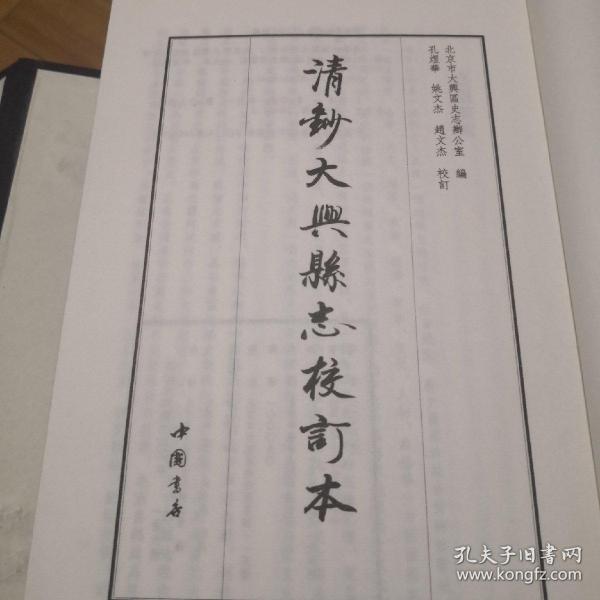 北京市大興區史志辦公室 編
孔煜華 姚文杰 趙文杰 校訂
清鈔大興縣志校訂本
中國書店
孔夫子旧书网
www.kongfz.com